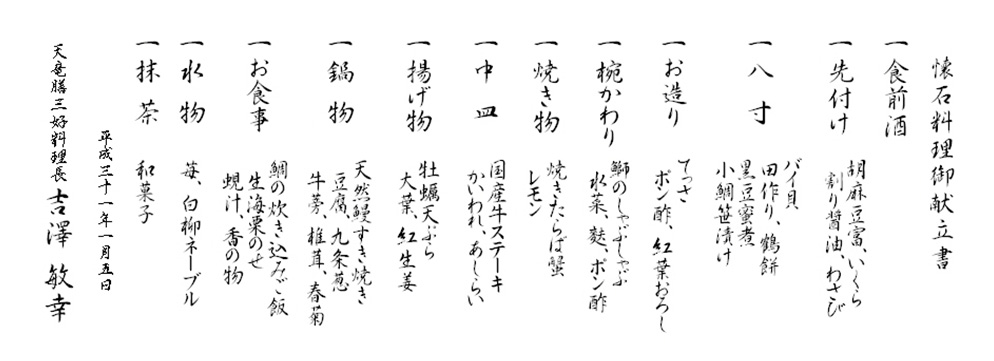 懐石料理御献立書
一 食前酒
一 先付け
胡麻豆富、いくら
割り醤油、わさび
一 八寸
バイ貝
田作り、鶴餅
黒豆蜜煮
小鯛笹漬け
一 お造り
てっさ
ポン酢、紅葉おろし
一 椀かわり
鰤のしゃぶしゃぶ
水菜、麩、ポン酢
一 焼き物
焼きたらば蟹
レモン
一 中皿
国産牛ステーキ
かいわれ、あしらい
一 揚げ物
牡蠣天ぷら
大葉、紅生姜
一 鍋物
天然鰻すき焼き
豆腐、九条葱
牛蒡、椎茸、春菊
一 お食事
鯛の炊き込みご飯
生海栗のせ
蜆汁、香の物
一 水物
苺、白柳ネーブル
一 抹茶
和菓子
平成三十一年一月五日
天竜膳三好料理長 吉澤 敏幸